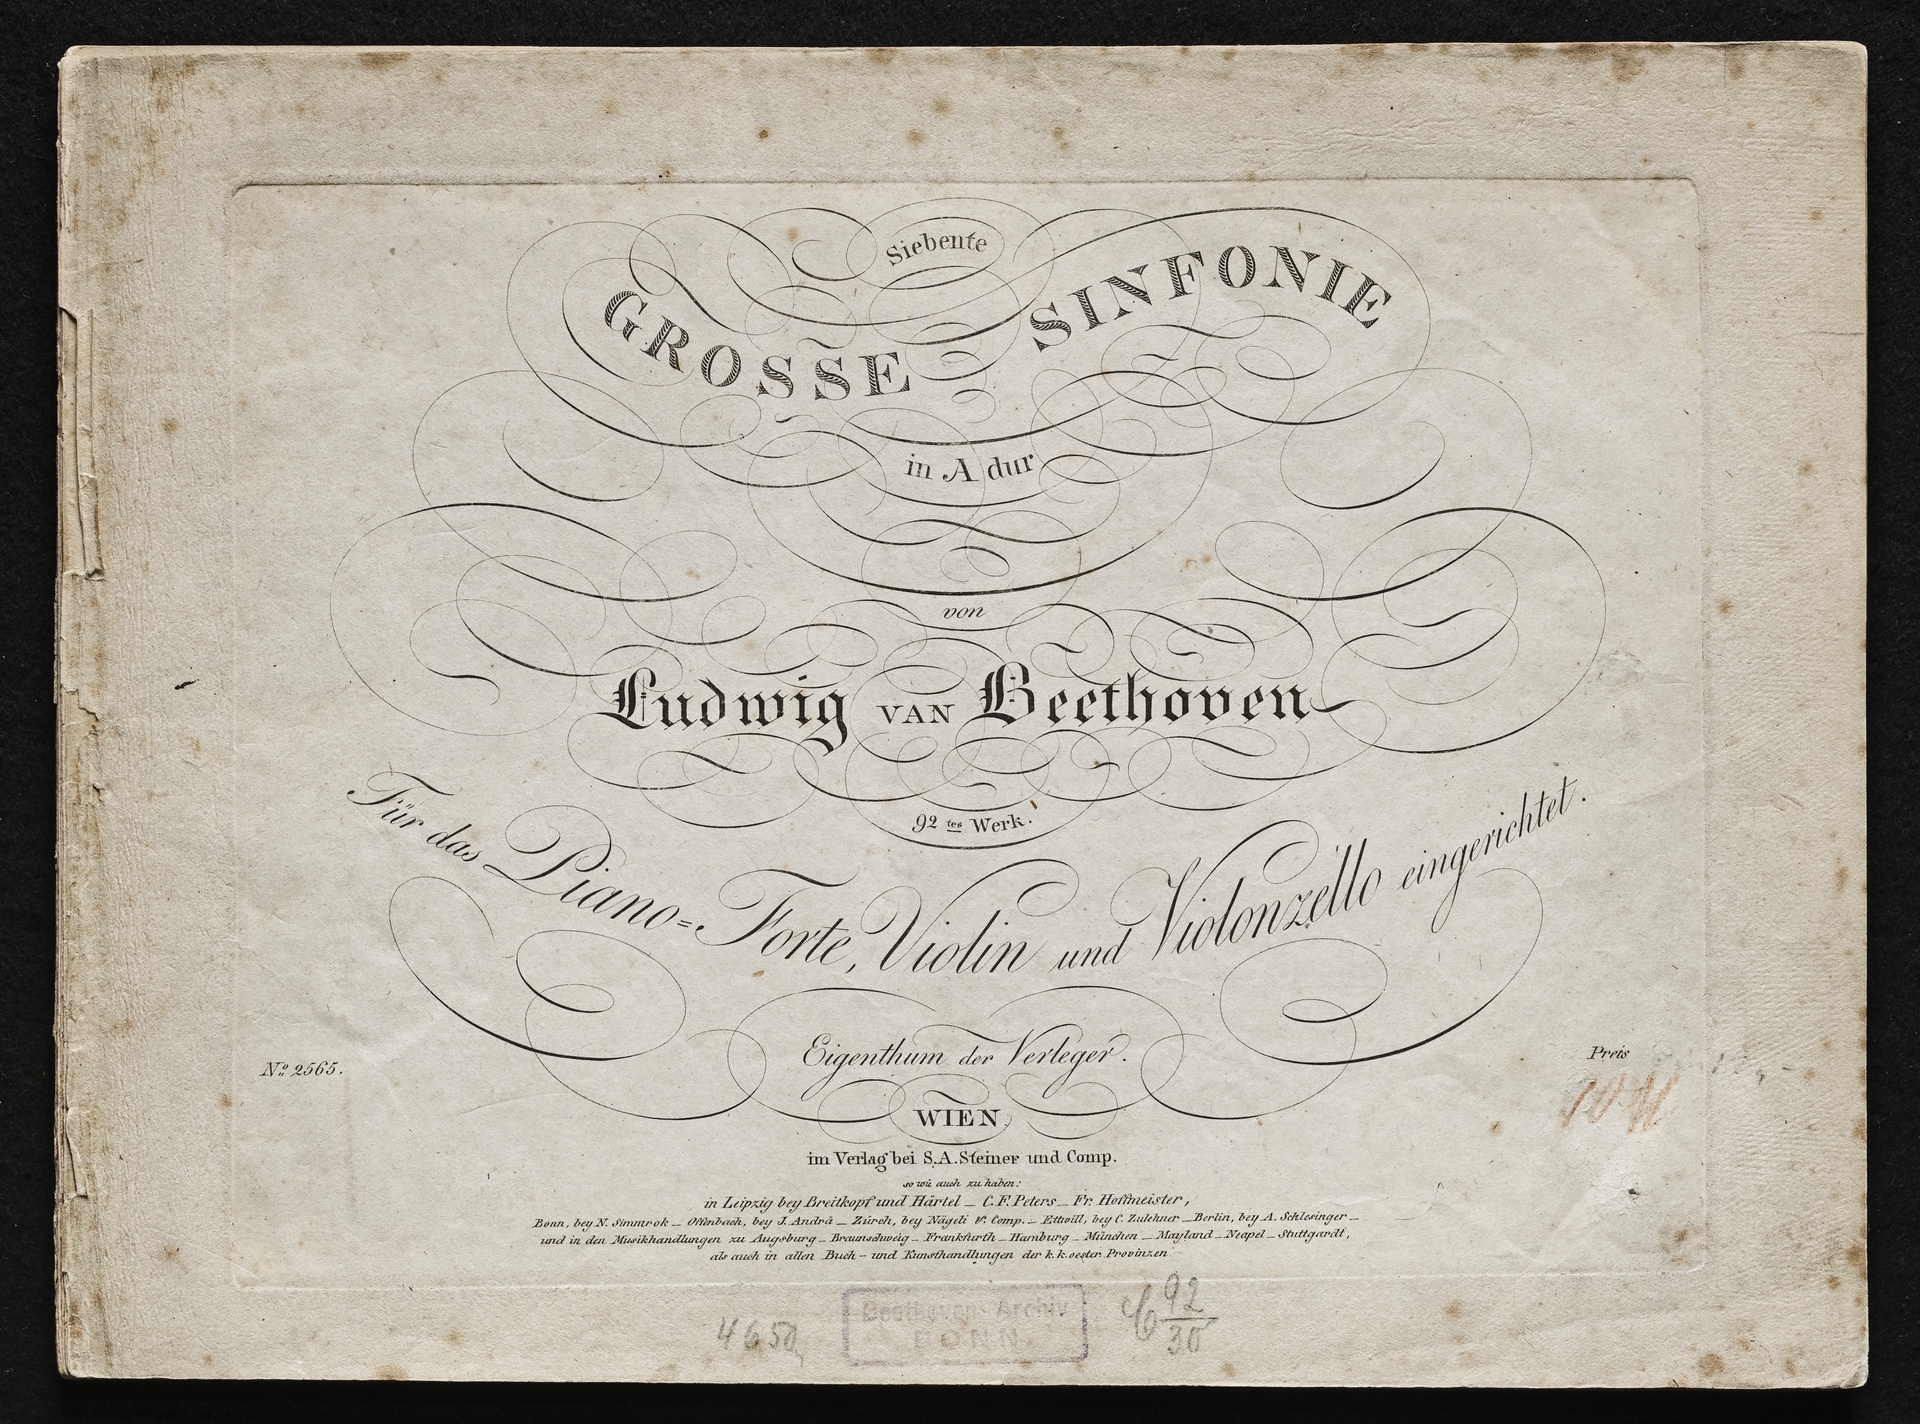 Siebente
GROSSE SINFONIE
in A dur
von
Ludwig VAN Beethoven
92 tes Werk.
Für das Piano=Forte, Violin und Violonzello eingerichtet.
Eigenthum der Verleger.
Nº 2565.
Preis
WIEN,
im Verlag bei S.A. Steiner und Comp.
so wie auch zu haben:
in Leipzig bey Breitkopf und Härtel _ C.F. Peters _ Fr. Hoffmeister,
Bonn, bey N. Simmrok _ Offenbach, bey J. André _ Zürch, bey Nägeli & Comp. _ Ettvill, bey C. Zulehner _ Berlin, bey A. Schlesinger _
und in den Musikhandlungen zu Augsburg _ Braunschweig _ Frankfurth _ Hamburg _ München _ Mayland _ Neapel _ Stuttgardt,
als auch in allen Buch- und Kunsthandlungen der k. k. oester. Provinzen
4650
Beethoven-Archiv
BONN
C 92
30